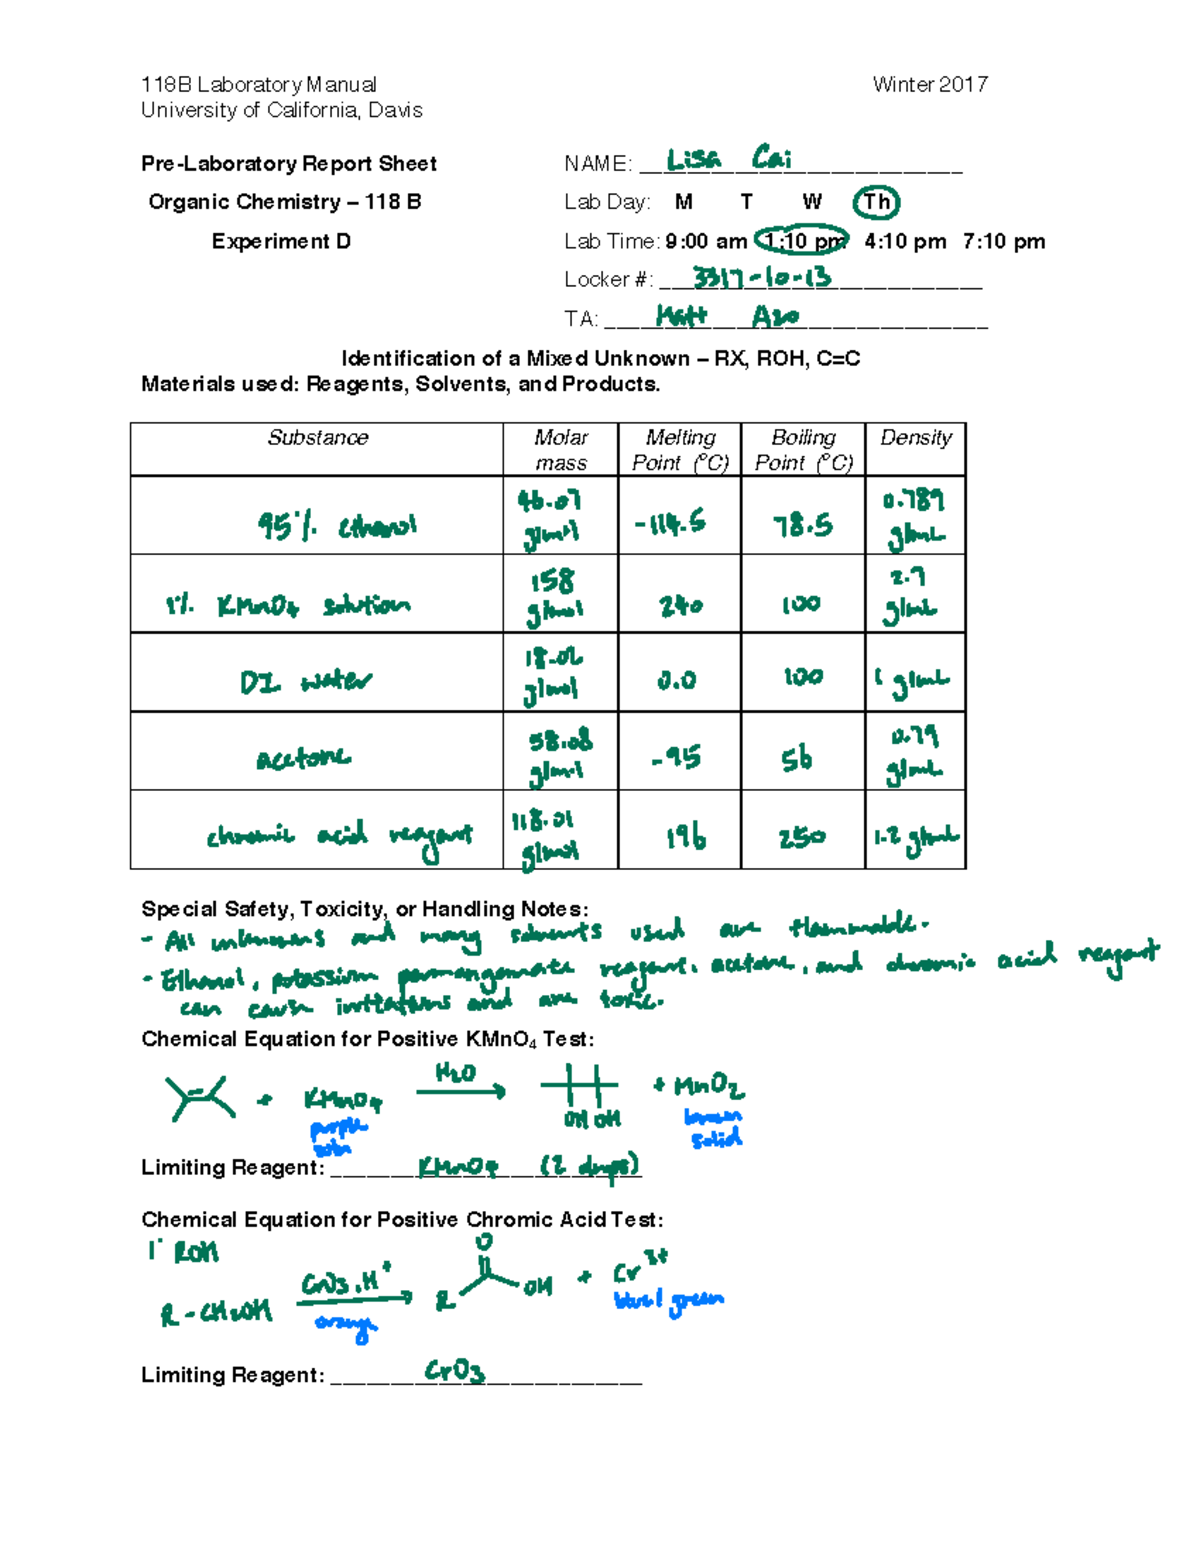 118B Laboratory Manual Winter 2017
University of California, Davis
Pre-Laboratory Report Sheet NAME: Lisa Cai
Organic Chemistry – 118 B Lab Day: M T W Th
Experiment D Lab Time: 9:00 am 1:10 pm 4:10 pm 7:10 pm
Locker #: 3317-10-13
TA: Matt Azo
Identification of a Mixed Unknown – RX, ROH, C=C
Materials used: Reagents, Solvents, and Products.
Substance Molar mass Melting Point (°C) Boiling Point (°C) Density
95% ethanol 46.07 g/mol -114.5 78.5 0.789 g/mL
1% KMnO4 solution 158 g/mol 240 100 2.7 g/mL
DI water 18.02 g/mol 0.0 100 1 g/mL
acetone 58.08 g/mol -95 56 0.79 g/mL
chromic acid reagent 118.01 g/mol 196 250 1.2 g/mL
Special Safety, Toxicity, or Handling Notes:
- All unknowns and many solvents used are flammable.
- Ethanol, potassium permanganate reagent, acetone, and chromic acid reagent
can cause irritations and are toxic.
Chemical Equation for Positive KMnO4 Test:
+ KMnO4 H2O OH OH + MnO2
purple soln brown solid
Limiting Reagent: KMnO4 (2 drops)
Chemical Equation for Positive Chromic Acid Test:
1° ROH
R-CH2OH CrO3, H+ R O OH + Cr3+
orange blue/green
Limiting Reagent: CrO3